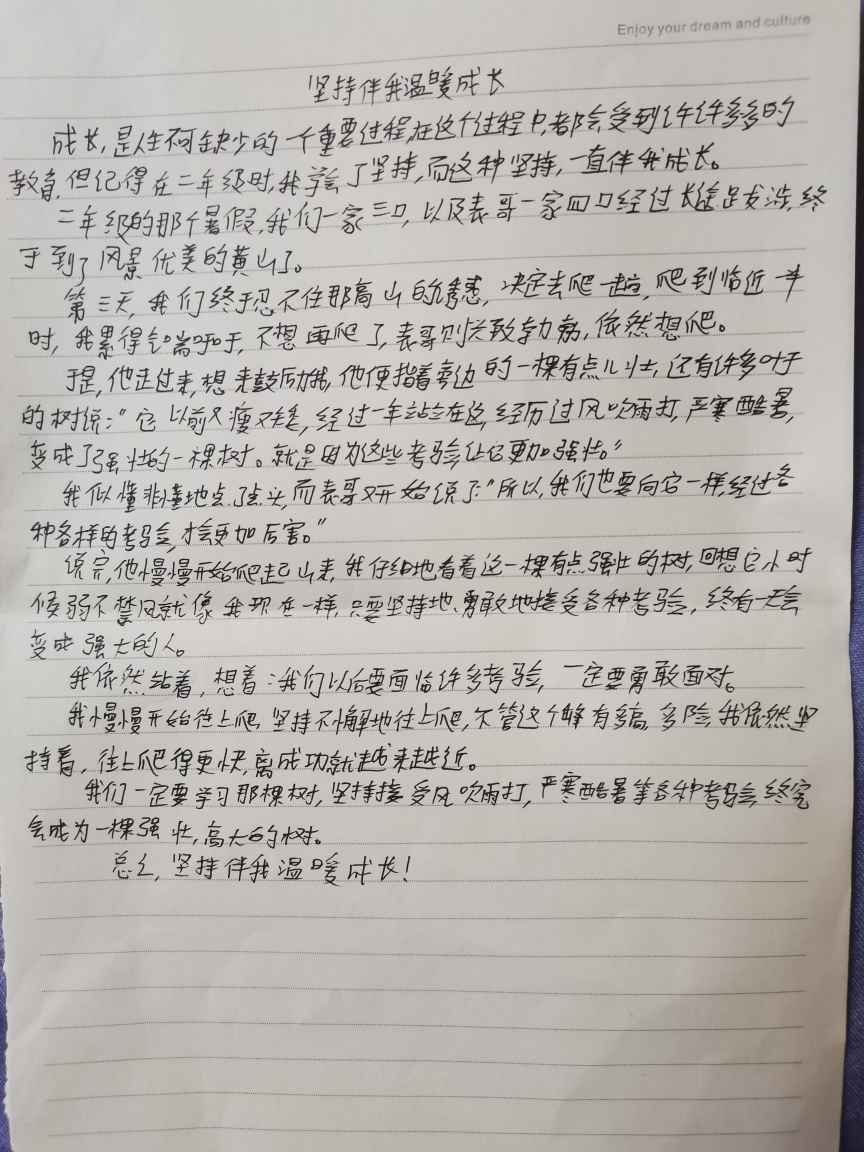 Enjoy your dream and culture
坚持伴我温暖成长
成长,是人生不可缺少的一个重要过程,在这个过程中,都会受到许许多多的
教育,但记得在二年级时,我学会了坚持,而这种坚持,一直伴我成长。
二年级的那个暑假,我们一家三口,以及表哥一家四口经过长途跋涉,终
于到了风景优美的黄山了。
第三天,我们终于忍不住那高山的诱惑,决定去爬一趟,爬到临近一半
时,我累得气喘吁吁,不想再爬了,表哥则兴致勃勃,依然想爬。
于是,他走过来,想来鼓励我,他便指着旁边的一棵有点儿壮,还有许多叶子
的树说:“它以前又瘦又矮,经过一年站立在这,经历过风吹雨打,严寒酷暑,
变成了强壮的一棵树。就是因为这些考验,让它更加强壮。”
我似懂非懂地点了点头,而表哥又开始说了:“所以,我们也要向它一样,经过各
种各样的考验,才会更加厉害。”
说完,他慢慢开始爬起山来,我仔细地看着这一棵有点强壮的树,回想它小时
候弱不禁风就像我现在一样,只要坚持地、勇敢地接受各种考验,终有一天会
变成强大的人。
我依然站着,想着:我们以后要面临许多考验,一定要勇敢面对。
我慢慢开始往上爬,坚持不懈地往上爬,不管这个峰有多高,多险,我依然坚
持着,往上爬得更快,离成功就越来越近。
我们一定要学习那棵树,坚持接受风吹雨打,严寒酷暑等各种考验,终究
会成为一棵强壮,高大的树。
总之,坚持伴我温暖成长!